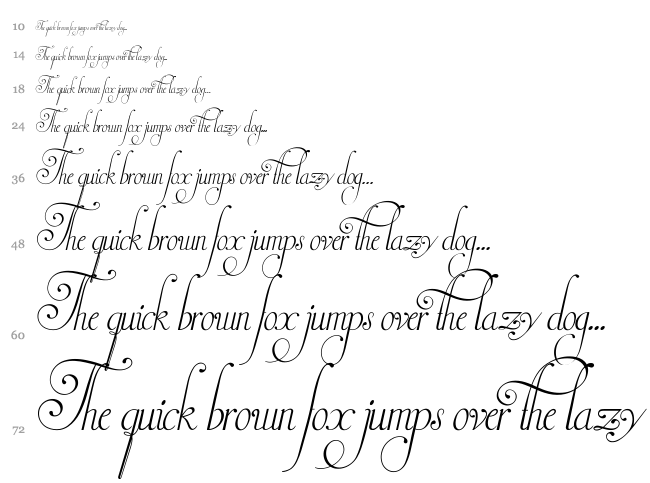 10 The quick brown fox jumps over the lazy dog...
14 The quick brown fox jumps over the lazy dog...
18 The quick brown fox jumps over the lazy dog...
24 The quick brown fox jumps over the lazy dog...
36 The quick brown fox jumps over the lazy dog...
48 The quick brown fox jumps over the lazy dog...
60 The quick brown fox jumps over the lazy dog...
72 The quick brown fox jumps over the lazy